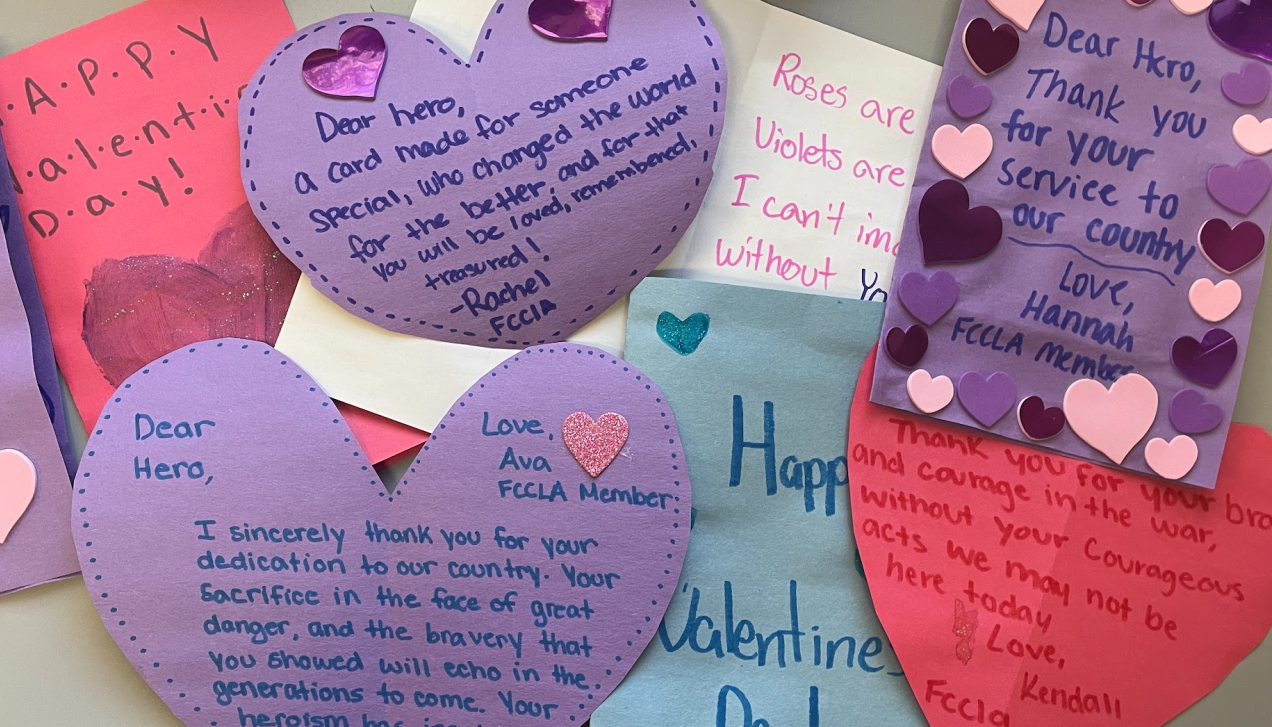 H·A·P·P·Y
Valenti
D·a·y!
Dear hero,
a card made for someone
special, who changed the world
for the better, and for that
you will be loved, remembered,
treasured!
-Rachel
FCCLA
Roses are
Violets are
I can't im
without Yo
Dear Hero,
Thank you
for your
service to
our country
Love,
Hannah
FCCLA Membe
Dear
Hero,
Love,
Ava
FCCLA Member
I sincerely thank you for your
dedication to our country. Your
Sacrifice in the face of great
danger, and the bravery that
you showed will echo in the
generations to come. Your
heroism has
Happ
Valentines
Thank you for your bra
and courage in the war,
without your Courageous
acts we may not be
here today
Love,
Kendall
Fccla